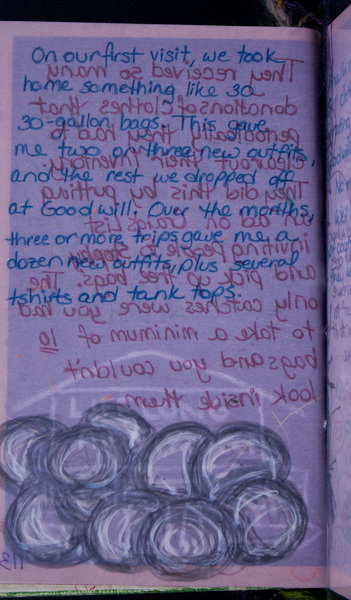 On our first visit, we took
home something like 30
30-gallon bags. This gave
me two or three new outfits,
and the rest we dropped off
at Goodwill. Over the months,
three or more trips gave me a
dozen new outfits, plus several
tshirts and tank tops.
They received so many
donations of clothes that
periodically they had to
clear out their inventory.
They did this by putting
an ad on Craigs List
inviting people to
and pick up free bags. The
only catches were you had
to take a minimum of 10
bags and you couldn't
look inside them